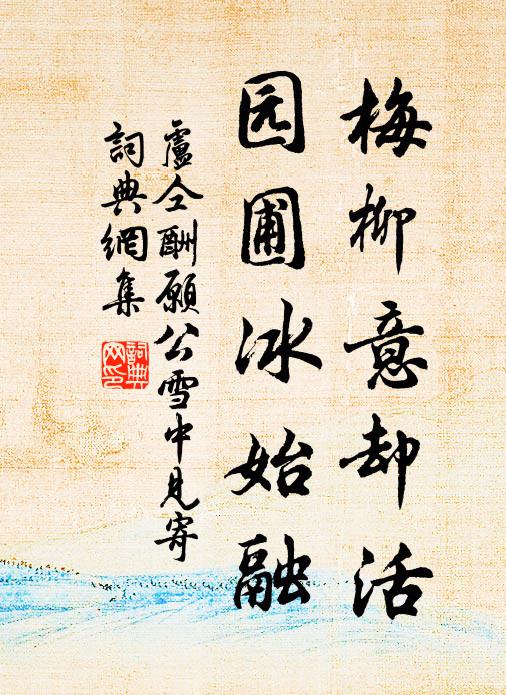 梅柳意却活
园圃冰始融
盧仝酬願公雪中見寄
詞典網集
詞典
网印